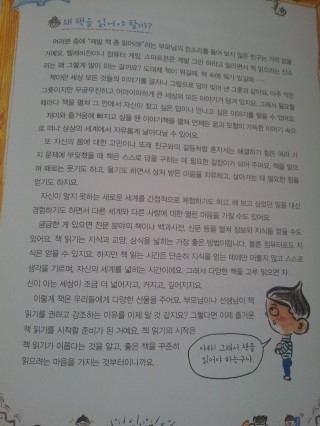 왜 책을 읽어야 할까?
여러분 중에 "제발 책 좀 읽어라!"라는 부모님의 잔소리를 들어 보지 않은 친구는 거의 없을
거예요. 텔레비전이나 컴퓨터 게임, 스마트폰은 제발 그만 하라고 말리면서 책 읽으라는 잔소
리는 왜 그렇게 많이 하는 걸까요? 도대체 책이 뭐길래, 책 속에 뭐가 있길래……
책이란 세상 모든 것들의 이야기를 글자나 그림으로 담아
그릇이지만 무궁무진하고 어마어마하게 큰 세상의 모든 이야기가 담겨 있지요. 그래서 필요할
때마다 책을 펼쳐 그 안에서 자신이 찾고 싶은 답이나 만나고 싶은 이야기를 찾을 수 있어요.
재미와 즐거움에 빠지고 싶을 땐 이야기책을 펼쳐 언제든 꿈과 모험이 가득한 이야기 속으
로 떠나 상상의 세계에서 자유롭게 날아다닐 수 있어요.
또 자신의 몸에 대한 고민이나 또래 친구와의 갈등처럼 혼자서는 해결하기 힘든 여러 가
지 문제에 부딪혔을 때 책은 스스로 답을 구하는 데 필요한 길잡이가 되어 주어요. 책을 읽으
며 때로는 웃기도 하고, 울기도 하면서 상처 받은 마음을 치유하고, 살아가는 데 필요한 힘을
얻기도 하지요.
자신이 알지 못하는 새로운 세계를 간접적으로 체험하기도 하고, 해 보고 싶었던 일을 대신
경험하기도 하면서 다른 세계와 다른 사람에 대한 열린 마음을 가질 수도 있어요.
궁금한 게 있으면 전문 분야의 책이나 백과사전, 신문 등을 펼쳐 정보와 지식을 얻을 수도
있어요. 책 읽기는 지식과 교양, 상식을 넓히는 가장 좋은 방법이랍니다. 물론 컴퓨터로도 지
식은 얻을 수 있지요. 하지만 책 읽는 시간은 단순히 지식을 얻는 데에만 머물지 않고 스스로
생각을 기르며, 자신의 세계를 넓히는 시간이에요. 그래서 다양한 책을 고루 읽으면 자
신이 아는 세상이 조금 더 넓어지고, 커지고, 깊어지지요.
이렇게 책은 우리들에게 다양한 선물을 주어요. 부모님이나 선생님이 책
읽기를 권하고 강조하는 이유를 이제 알 것 같지요? 그렇다면 이제 즐거운
책 읽기를 시작할 준비가 된 거예요. 책 읽기의 시작은
책 읽기가 이롭다는 것을 알고, 좋은 책을 꾸준히
읽으려는 마음을 가지는 것부터이니까요.
아하! 그래서 책을
읽어야 하는구나.